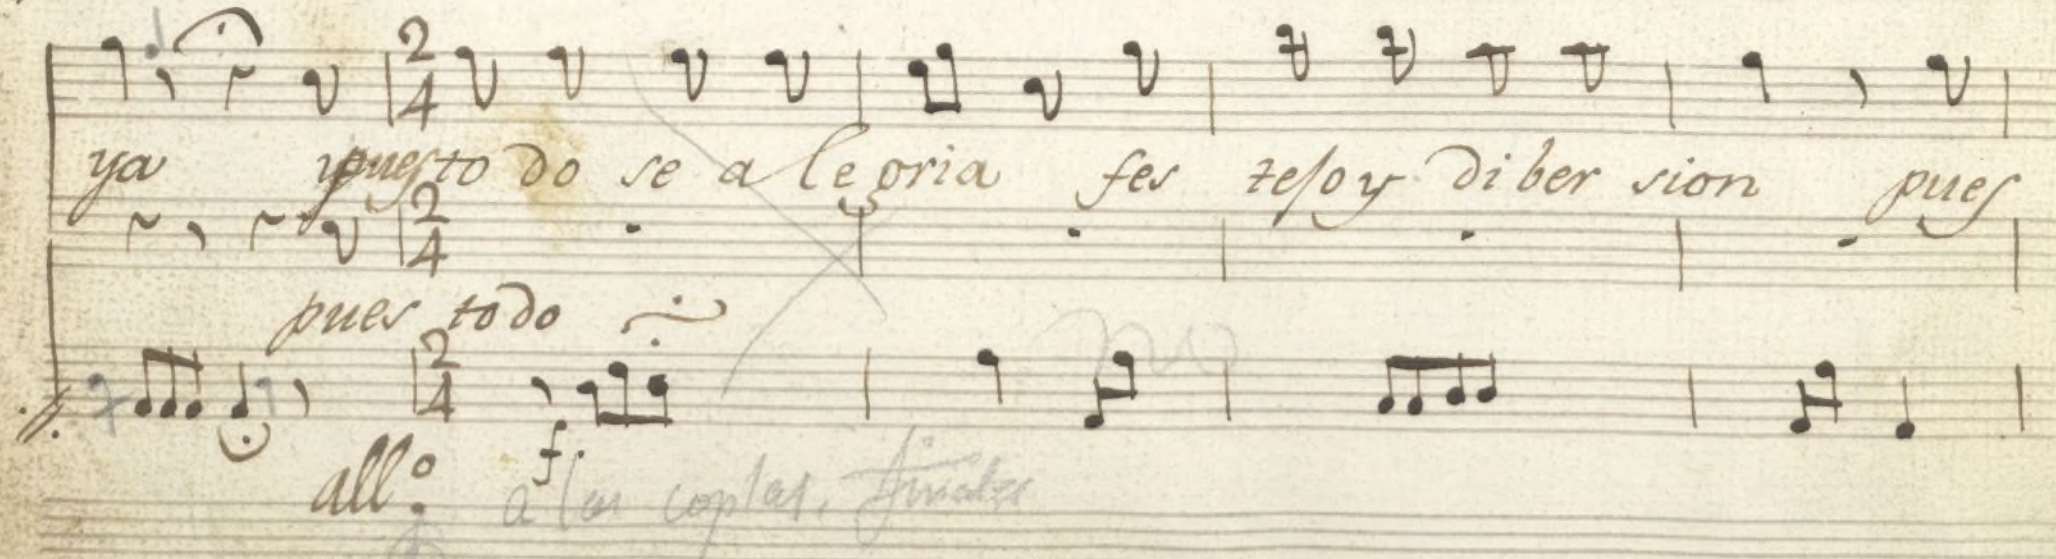 2/4
ya pues to do se a le gria fes tejo y di ber sion pues
2/4
pues todo
2/4
f.
all.º
a las coplas finales
no